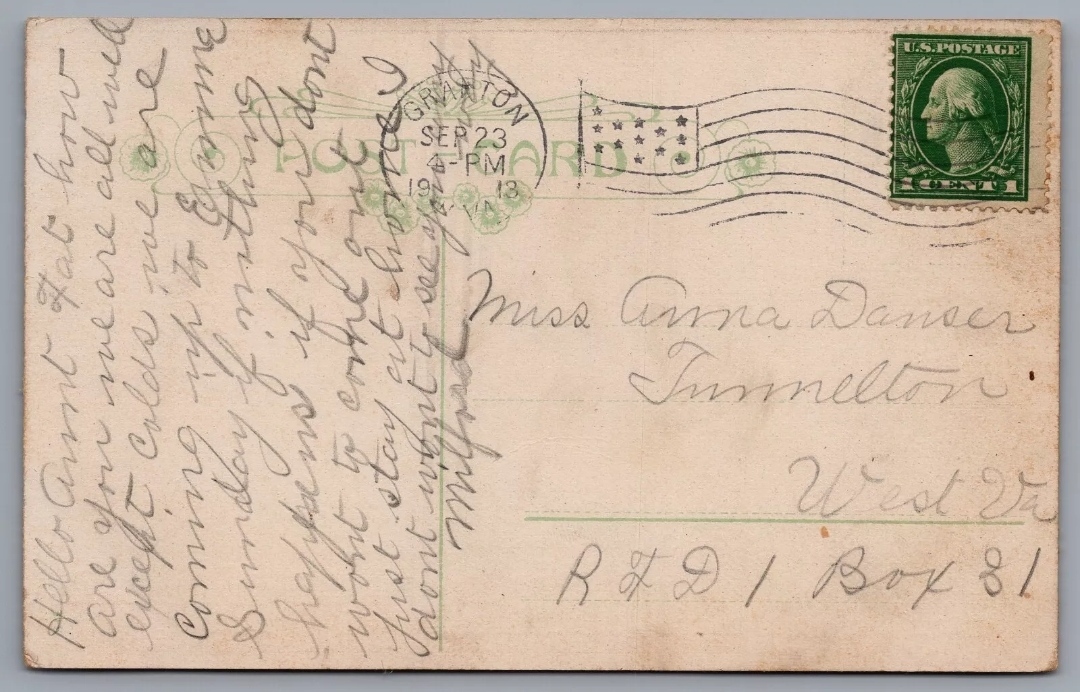 Hello Aunt Fat how
are you we are all well
except colds we are
coming up to
Sunday if nothing
happens if you dont
want to come out
just stay at home I
dont want to see you any
Milford
POST CARD
GRAFTON
SEP 23
4-PM
1913
W.VA.
U.S. POSTAGE
1 CENT 1
Miss Anna Danser
Tunnelton
West Va
R F D 1 Box 31